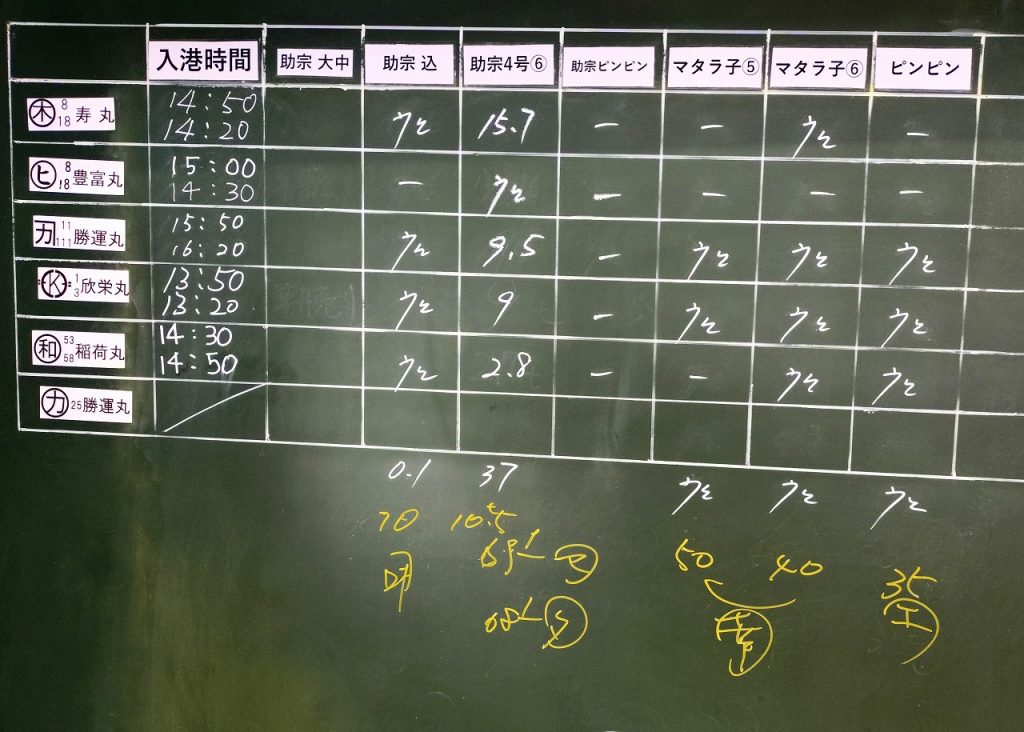 入港時間 助宗 大中 助宗 込 助宗4号⑥ 助宗ピンピン マタラ子⑤ マタラ子⑥ ピンピン
木 8 18 寿丸 14:50 14:20 ウと 15.7 ー ー ウと ー
ヒ 8 18 豊富丸 15:00 14:30 ー ウと ー ー ー ー
カ 11 111 勝運丸 15:50 16:20 ウと 9.5 ー ウと ウと ウと
K 1 3 欣栄丸 13:50 13:20 ウと 9 ー ウと ウと ウと
和 53 58 稲荷丸 14:30 14:50 ウと 2.8 ー ー ウと ウと
カ 25 勝運丸
0.1 37 ウと ウと ウと
70 10.5
50 40 35